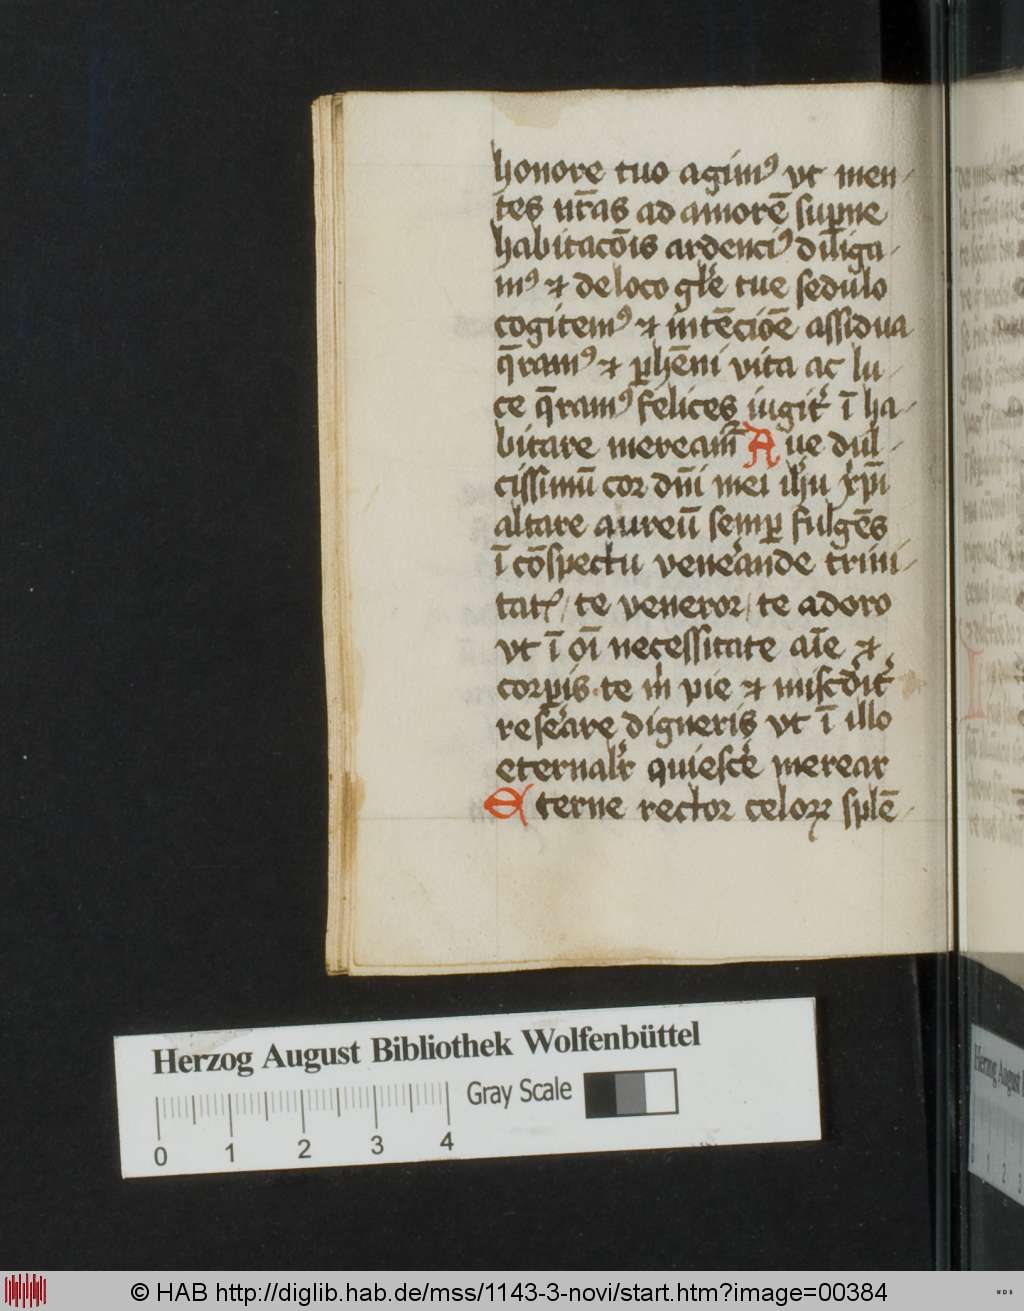 honore tuo agim⁹ vt men-
tes nr̄as ad amorē sup̄ne
habitacōis ardenci⁹ diliga-
m⁹ ⁊ de loco gl̄e tue sedulo
cogitem⁹ ⁊ intēcioē assidua
q̄ram⁹ ⁊ ꝑhēni vita ac lu-
ce q̄ram⁹ felices iugit͛ ī ha-
bitare meream͛ Aue dul-
cissimū cor dn̄i mei ihu xp̄i
altare aureū semꝑ fulgēs
ī cōspectu vene͛ande trini-
tatꝭ / te veneror / te adoro
vt ī oī necessitate aīe ⁊
corꝑis te m̄ pie ⁊ misc̄dit͛
rese͛are digneris vt ī illo
eternalr̄ quiesc͛e merear
Eterne rector celoꝝ splē-
Herzog August Bibliothek Wolfenbüttel
Gray Scale
0 1 2 3 4
© HAB http://diglib.hab.de/mss/1143-3-novi/start.htm?image=00384